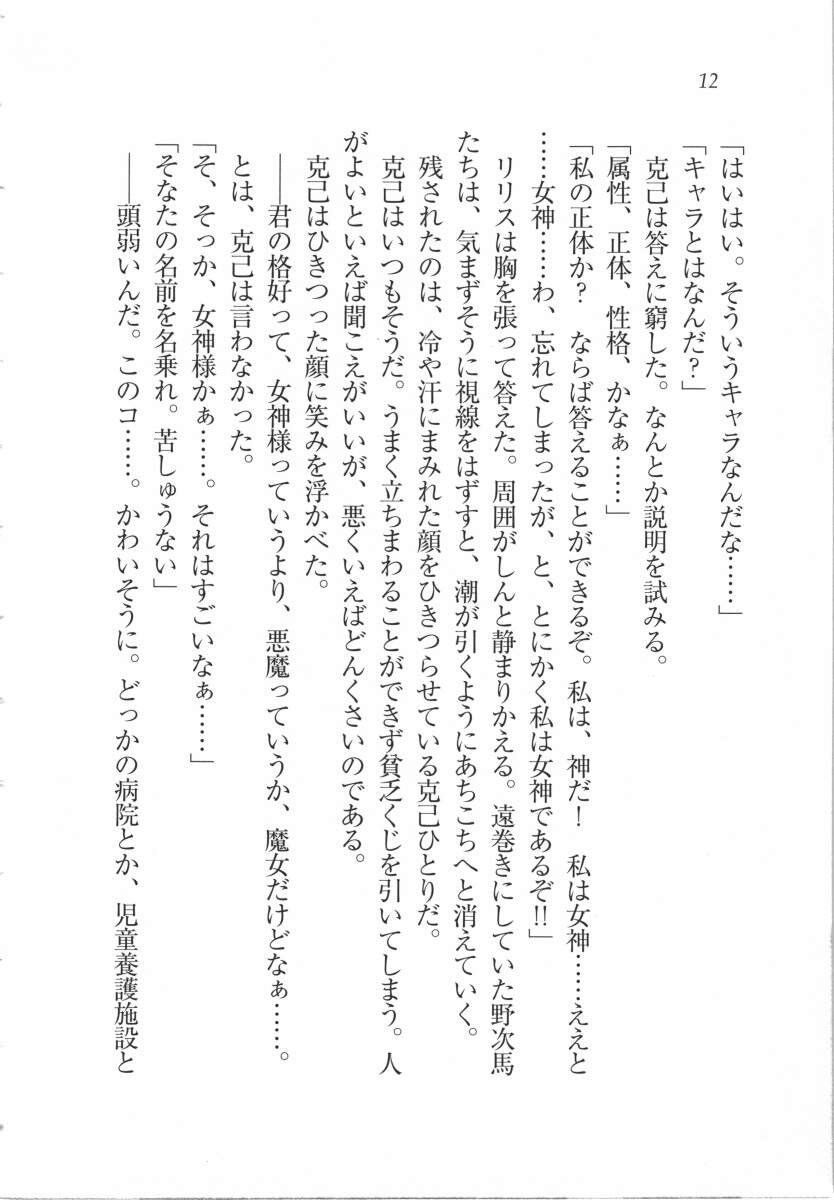 12
「はいはい。そういうキャラなんだな……」
「キャラとはなんだ？」
克己は答えに窮した。なんとか説明を試みる。
「属性、正体、性格、かなぁ……」
「私の正体か？　ならば答えることができるぞ。私は、神だ！　私は女神……ええと
……女神……わ、忘れてしまったが、と、とにかく私は女神であるぞ!!」
リリスは胸を張って答えた。周囲がしんと静まりかえる。遠巻きにしていた野次馬
たちは、気まずそうに視線をはずすと、潮が引くようにあちこちへと消えていく。
残されたのは、冷や汗にまみれた顔をひきつらせている克己ひとりだ。
克己はいつもそうだ。うまく立ちまわることができず貧乏くじを引いてしまう。人
がよいといえば聞こえがいいが、悪くいえばどんくさいのである。
克己はひきつった顔に笑みを浮かべた。
――君の格好って、女神様っていうより、悪魔っていうか、魔女だけどなぁ……。
とは、克己は言わなかった。
「そ、そっか、女神様かぁ……。それはすごいなぁ……」
「そなたの名前を名乗れ。苦しゅうない」
――頭弱いんだ。このコ……。かわいそうに。どっかの病院とか、児童養護施設と